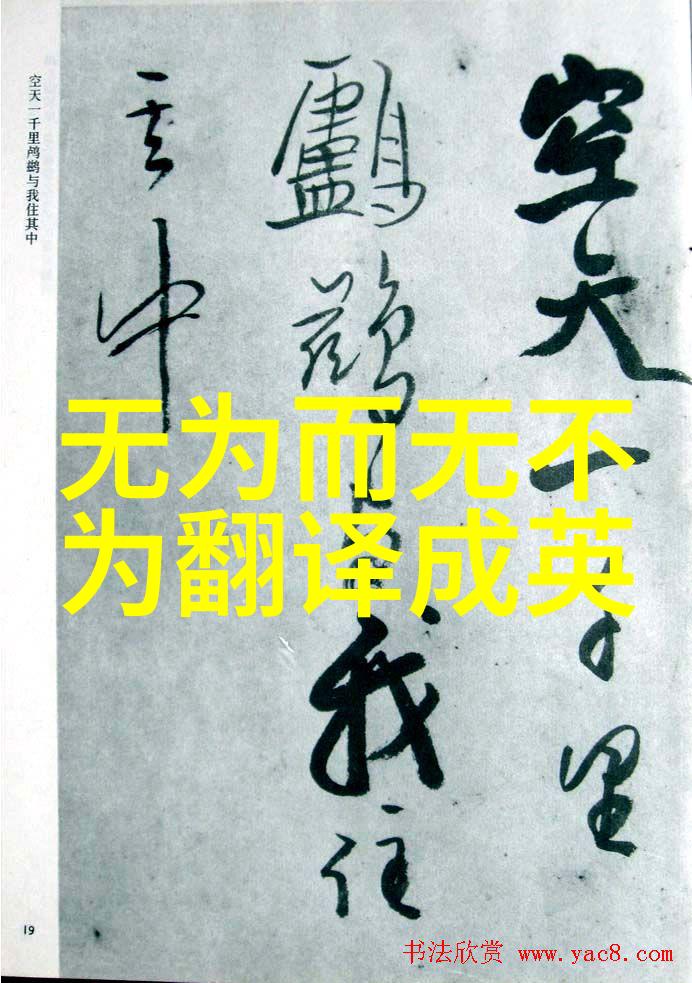 空天一千里
鸕鷀我住
其中
空天一千里鸬鹚与我住其中
无为而无不
为翻译成英
19
书法欣赏 www.yac8.com